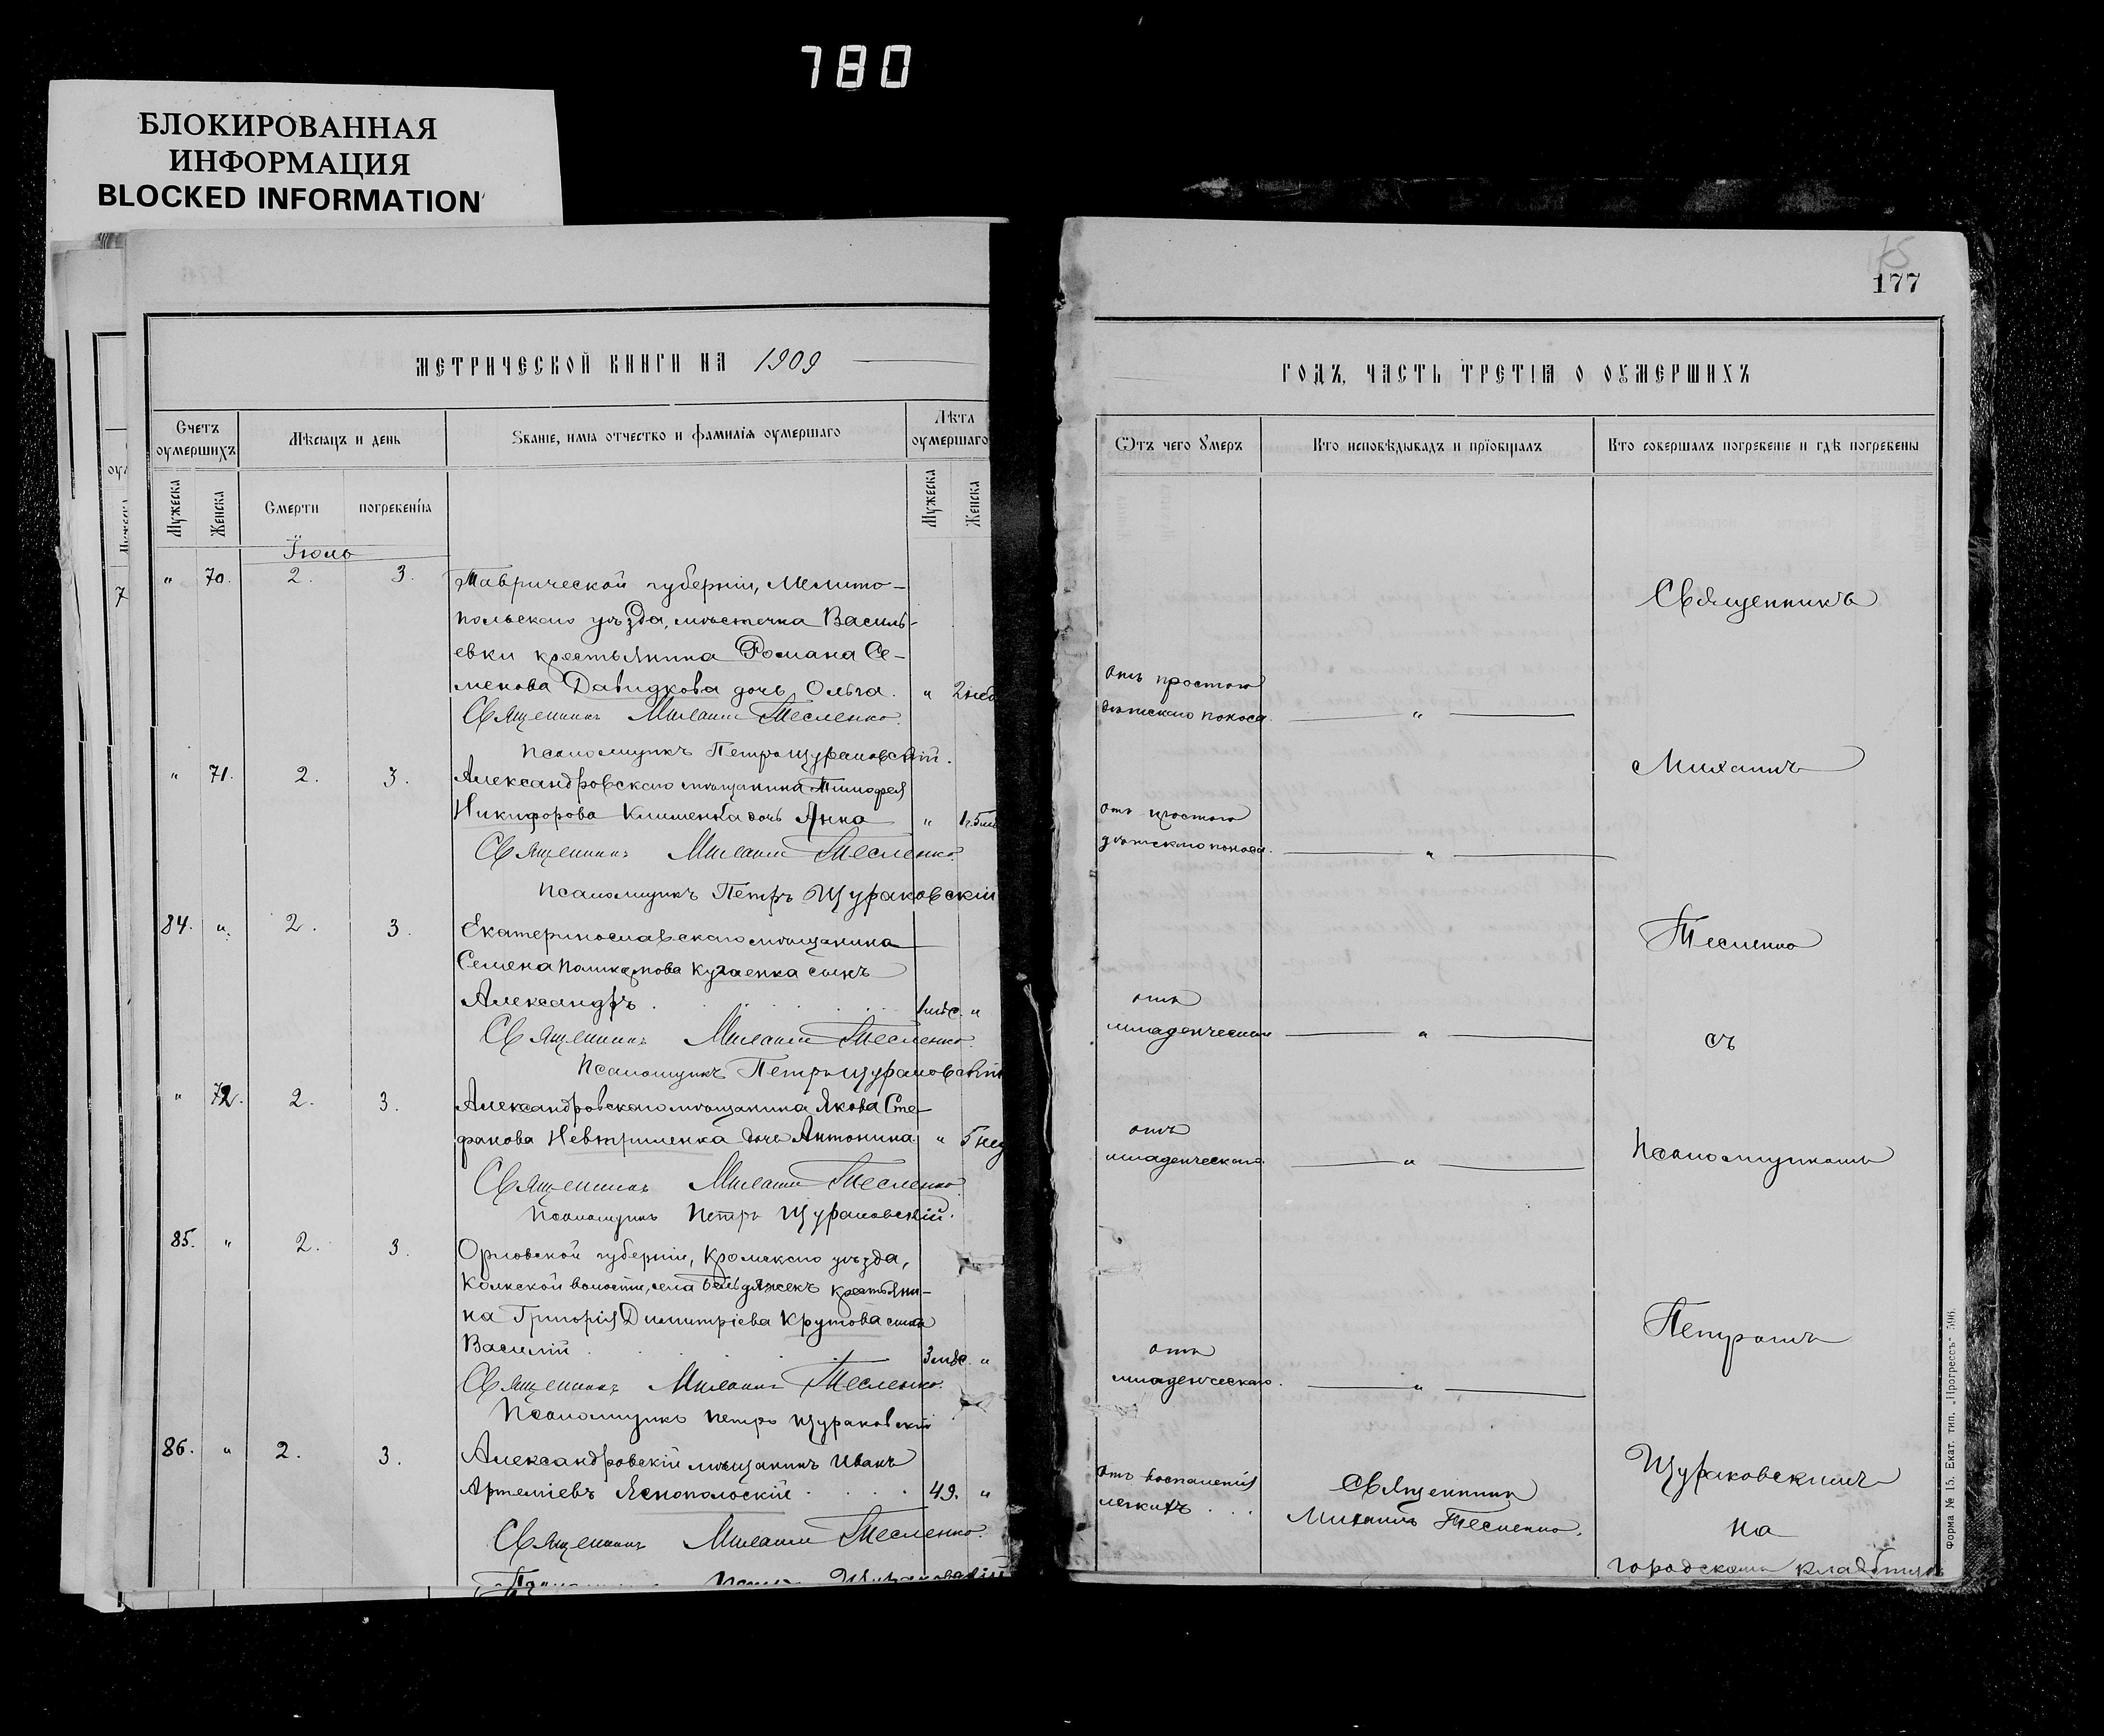 780
БЛОКИРОВАННАЯ
ИНФОРМАЦИЯ
BLOCKED INFORMATION
175
177
МЕТРИЧЕСКОЙ КНИГИ НА 1909
ГОДЪ, ЧАСТЬ ТРЕТІЯ О ОУМЕРШИХЪ
Счетъ оумершихъ
Мѣсяцъ и день
Званіе, имя отчество и фамилія оумершаго
Лѣта оумершаго
Мужеска
Женска
Смерти
погребенія
Мужеска
Женска
Отъ чего Умеръ
Кто исповѣдывалъ и пріобщалъ
Кто совершалъ погребеніе и гдѣ погребены
Іюль
" 70. 2. 3. Таврической губерніи, Мелито-
польскаго уѣзда, мѣстечка Василь-
евки крестьянина Романа Се-
менова Давидкова дочь Ольга. " 2 нед
Священникъ Михаилъ Тесленко.
Псаломщикъ Петръ Щураковскій.
" 71. 2. 3. Александровскаго мѣщанина Тимофея
Никифорова Клименка дочь Анна " 1г. 5 мѣ
Священникъ Михаилъ Тесленко.
Псаломщикъ Петръ Щураковскій
84. " 2. 3. Екатеринославскаго мѣщанина
Семена Поликарпова Кугаенка сынъ
Александръ . 1 мѣс. "
Священникъ Михаилъ Тесленко.
Псаломщикъ Петръ Щураковскій
" 72. 2. 3. Александровскаго мѣщанина Якова Сте-
фанова Невтриленка дочь Антонина. " 5 нед
Священникъ Михаилъ Тесленко
Псаломщикъ Петръ Щураковскій.
85. " 2. 3. Орловской губерніи, Кромскаго уѣзда,
волости, села крестьяни-
на Григорія Димитріева Крутова сынъ
Василій . 3 мѣс. "
Священникъ Михаилъ Тесленко.
Псаломщикъ Петръ Щураковскій
86. " 2. 3. Александровскій мѣщанинъ Иванъ
Артеміевъ Яснопольскій . . . 49. "
Священникъ Михаилъ Тесленко.
Псаломщикъ Петръ Щураковскій
отъ простого
дѣтскаго поноса. "
отъ простого
дѣтскаго поноса. "
отъ
младенческаго "
отъ
младенческаго "
отъ
младенческаго. "
отъ воспаленія
легкихъ . . .
Священникъ
Михаилъ Тесленко.
Священникъ
Михаилъ
Тесленко
съ
Псаломщикомъ
Петромъ
Щураковскимъ
на
городскомъ кладбищѣ
Форма № 15. Екат. тип. „Прогрессъ" 596.